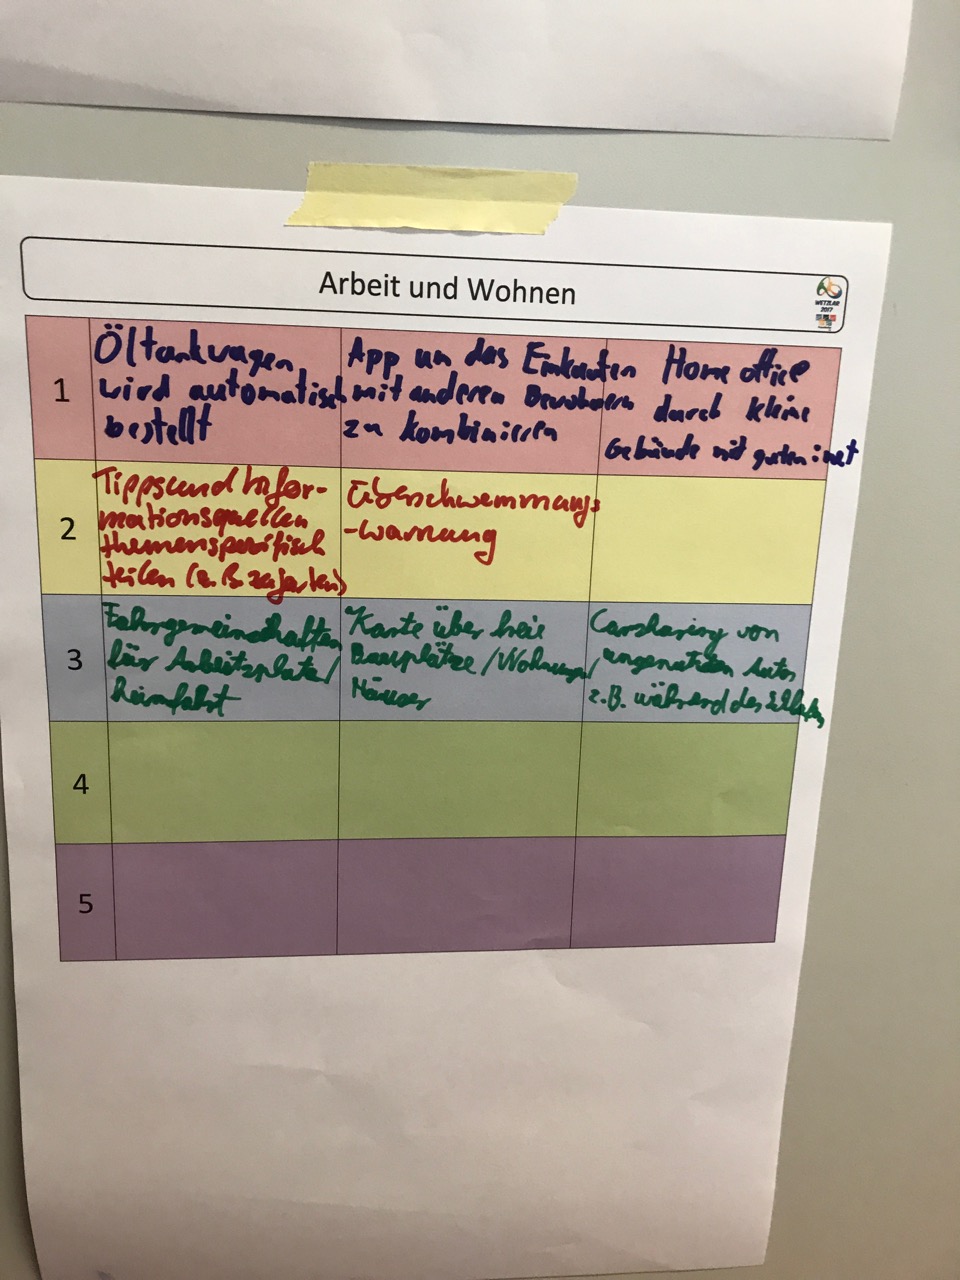 Arbeit und Wohnen
WETZLAR
2017
1
Öltankwagen
wird automatisch
bestellt
App um das Einkaufen
mit anderen Bewohnern
zu kombinieren
Home office
durch kleine
Gebäude mit guten inet
2
Tipps und Infor-
mationsquellen
themenspezifisch
teilen (z.B.
Überschwemmungs
-warnung
3
Fahrgemeinschaften
für Arbeitsplatz/
heimfahrt
Karte über freie
Bauplätze/Wohnungen/
Häuser
Carsharing von
ungenutzten Autos
z.B. während des Schlafens
4
5